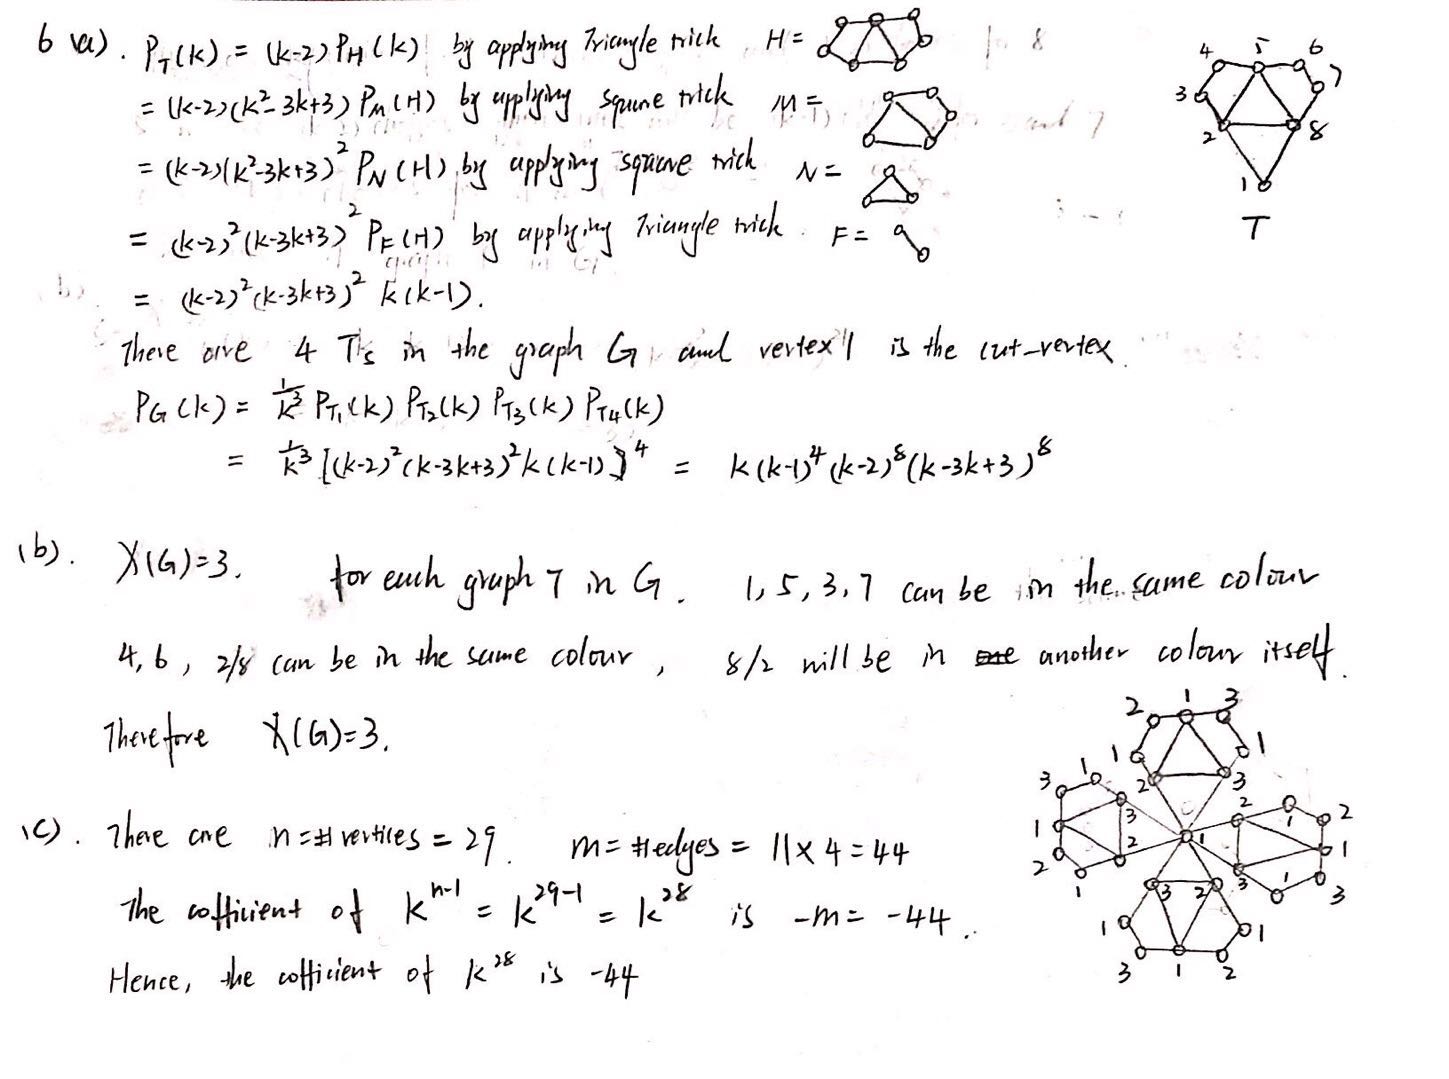 6 (a). P_T(k) = (k-2) P_H(k) by applying Triangle trick H =
= (k-2)(k²-3k+3) P_M(H) by applying square trick M =
= (k-2)(k²-3k+3)² P_N(H) by applying square trick N =
= (k-2)²(k-3k+3)² P_F(H) by applying Triangle trick. F =
= (k-2)²(k-3k+3)² k(k-1).
4 5 6
3 7
2 8
1
T
There are 4 T's in the graph G and vertex 1 is the cut-vertex.
P_G(k) = 1/k³ P_T₁(k) P_T₂(k) P_T₃(k) P_T₄(k)
= 1/k³ [(k-2)²(k-3k+3)² k(k-1)]⁴ = k(k-1)⁴(k-2)⁸(k-3k+3)⁸
(b). χ(G)=3. for each graph T in G. 1, 5, 3, 7 can be in the same colour
4, 6, 2/8 can be in the same colour, 8/2 will be in one another colour itself.
Therefore χ(G)=3.
(c). There are n=# vertices = 29. m= #edges = 11 x 4 = 44
The cofficient of k^(n-1) = k^(29-1) = k^28 is -m = -44.
Hence, the cofficient of k^28 is -44
2 1 3
1 1
2 3
3 1
3
1
2
2 1
2 1 2
1
3 1 3
1
3 2
1 1
3 1 2